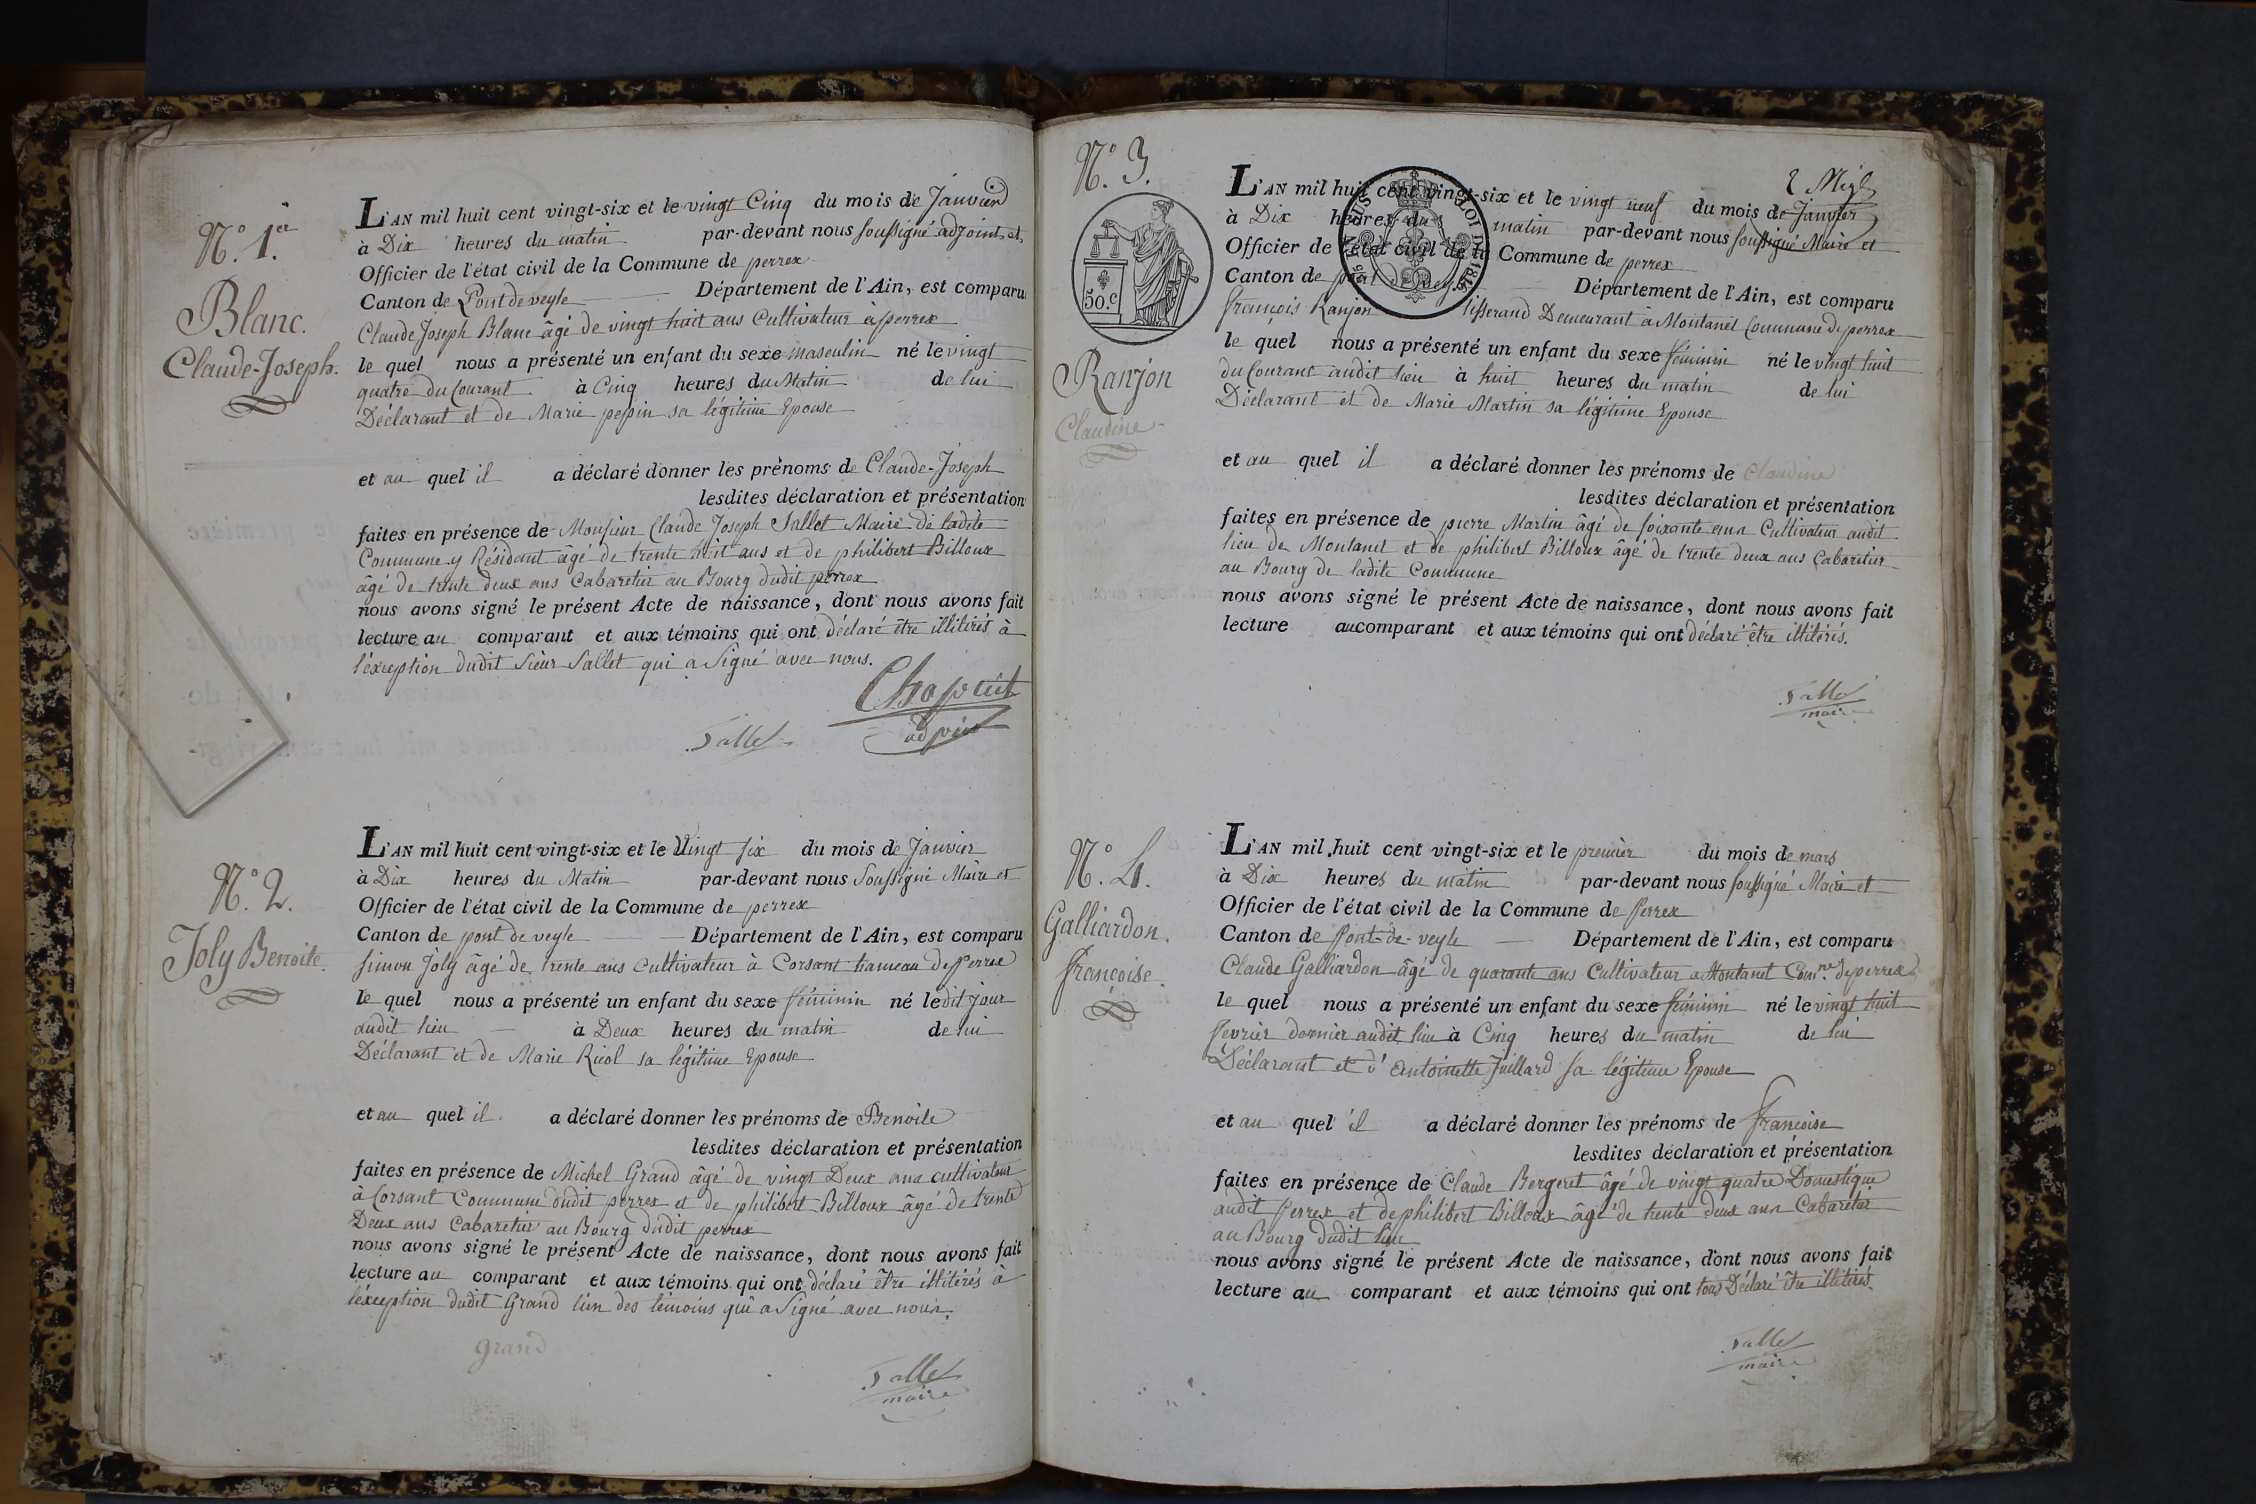 N.° 1.er
Blanc.
Claude-Joseph.
L'AN mil huit cent vingt-six et le vingt Cinq du mois de Janvier
à Dix heures du matin par-devant nous soussigné adjoint et
Officier de l'état civil de la Commune de perrex
Canton de Pont de veyle Département de l'Ain, est comparu
Claude Joseph Blanc âgé de vingt huit ans Cultivateur à perrex
le quel nous a présenté un enfant du sexe masculin né le vingt
quatre du Courant à Cinq heures du Matin de lui
Déclarant et de Marie pepin sa légitime Epouse
et au quel il a déclaré donner les prénoms de Claude-Joseph
lesdites déclaration et présentation
faites en présence de Monsieur Claude Joseph Sallet Maire de ladite
Commune y Résidant âgé de trente huit ans et de philibert Billoux
âgé de trente deux ans Cabaretier au Bourg dudit perrex
nous avons signé le présent Acte de naissance, dont nous avons fait
lecture au comparant et aux témoins qui ont déclaré être illitérés à
l'éxception dudit Sieur Sallet qui a Signé avec nous.
Chapuit
Sallet adjoint
N.° 2.
Joly Benoite.
L'AN mil huit cent vingt-six et le Vingt six du mois de Janvier
à Dix heures du Matin par-devant nous Soussigné Maire et
Officier de l'état civil de la Commune de perrex
Canton de pont de veyle Département de l'Ain, est comparu
Simon Joly âgé de trente ans Cultivateur à Corsant hameau de perrex
le quel nous a présenté un enfant du sexe féminin né le dit jour
audit lieu à Deux heures du matin de lui
Déclarant et de Marie Ricol sa légitime Epouse
et au quel il a déclaré donner les prénoms de Benoite
lesdites déclaration et présentation
faites en présence de Michel Grand âgé de vingt Deux ans cultivateur
à Corsant Commune dudit perrex et de philibert Billoux âgé de trente
Deux ans Cabaretier au Bourg dudit perrex
nous avons signé le présent Acte de naissance, dont nous avons fait
lecture au comparant et aux témoins qui ont déclaré être illitérés à
l'éxception dudit Grand l'un des témoins qui a Signé avec nous.
grand
Sallet
maire
N.° 3.
50.c
Ranjon
Claudine
L'AN mil huit cent vingt-six et le vingt neuf du mois de Janvier
à Dix heures du matin par-devant nous soussigné Maire et
Officier de l'état civil de la Commune de perrex
Canton de pont de veyle Département de l'Ain, est comparu
françois Ranjon tisserand Demeurant à Montanet Commune de perrex
le quel nous a présenté un enfant du sexe féminin né le vingt huit
du Courant audit lieu à huit heures du matin de lui
Déclarant et de Marie Martin sa légitime Epouse
et au quel il a déclaré donner les prénoms de Claudine
lesdites déclaration et présentation
faites en présence de pierre Martin âgé de soixante ans Cultivateur audit
lieu de Montanet et de philibert Billoux âgé de trente deux ans Cabaretier
au Bourg de ladite Commune
nous avons signé le présent Acte de naissance, dont nous avons fait
lecture au comparant et aux témoins qui ont déclaré être illitérés.
Sallet
maire
N.° 4.
Galliardon.
françoise.
L'AN mil huit cent vingt-six et le premier du mois de mars
à Dix heures du matin par-devant nous soussigné Maire et
Officier de l'état civil de la Commune de Perrex
Canton de Pont-de-veyle Département de l'Ain, est comparu
Claude Galliardon âgé de quarante ans Cultivateur à Montanet Com.ne de perrex
le quel nous a présenté un enfant du sexe féminin né le vingt huit
février dernier audit lieu à Cinq heures du matin de lui
Déclarant et d'Antoinette Juillard sa légitime Epouse
et au quel il a déclaré donner les prénoms de françoise
lesdites déclaration et présentation
faites en présence de Claude Bergeret âgé de vingt quatre Domestique
audit Perrex et de philibert Billoux âgé de trente deux ans Cabaretier
au Bourg dudit lieu
nous avons signé le présent Acte de naissance, dont nous avons fait
lecture au comparant et aux témoins qui ont tous Déclaré être illitérés.
Sallet
maire